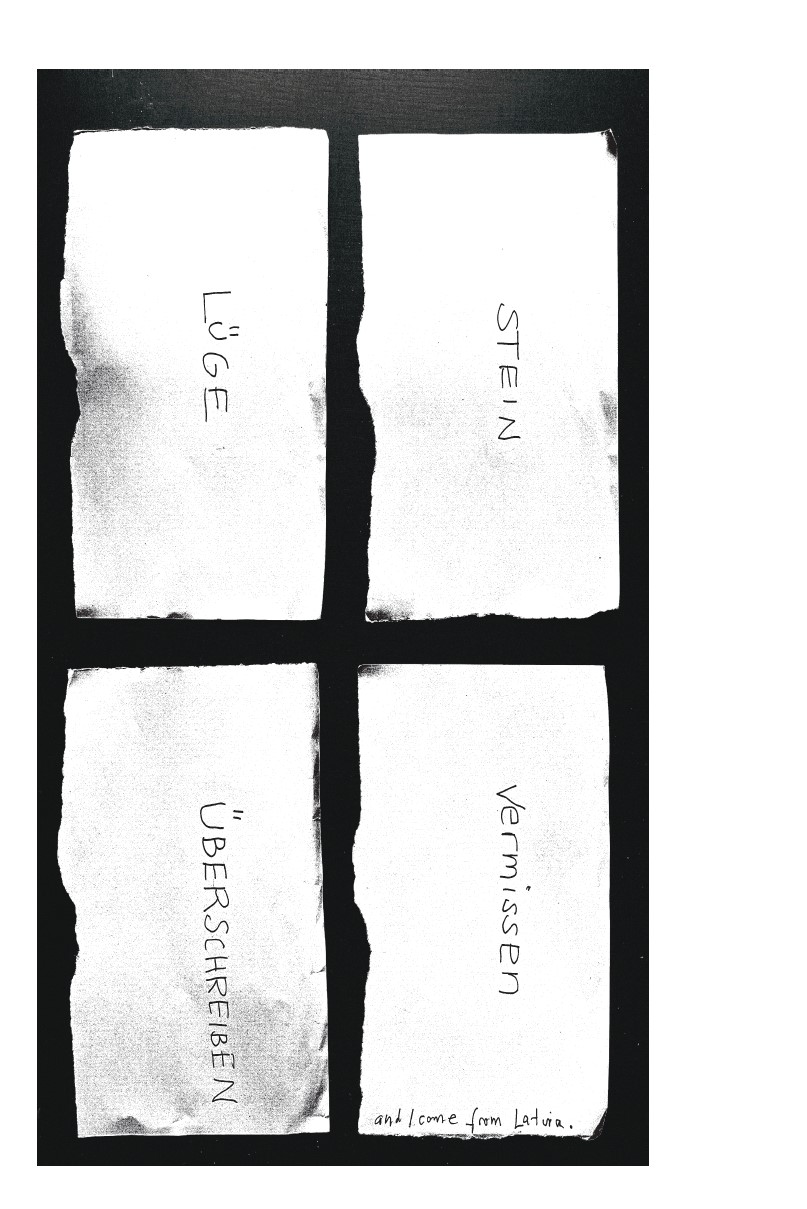 LÜGE
STEIN
ÜBERSCHREIBEN
Vermissen
and I come from Latvia.